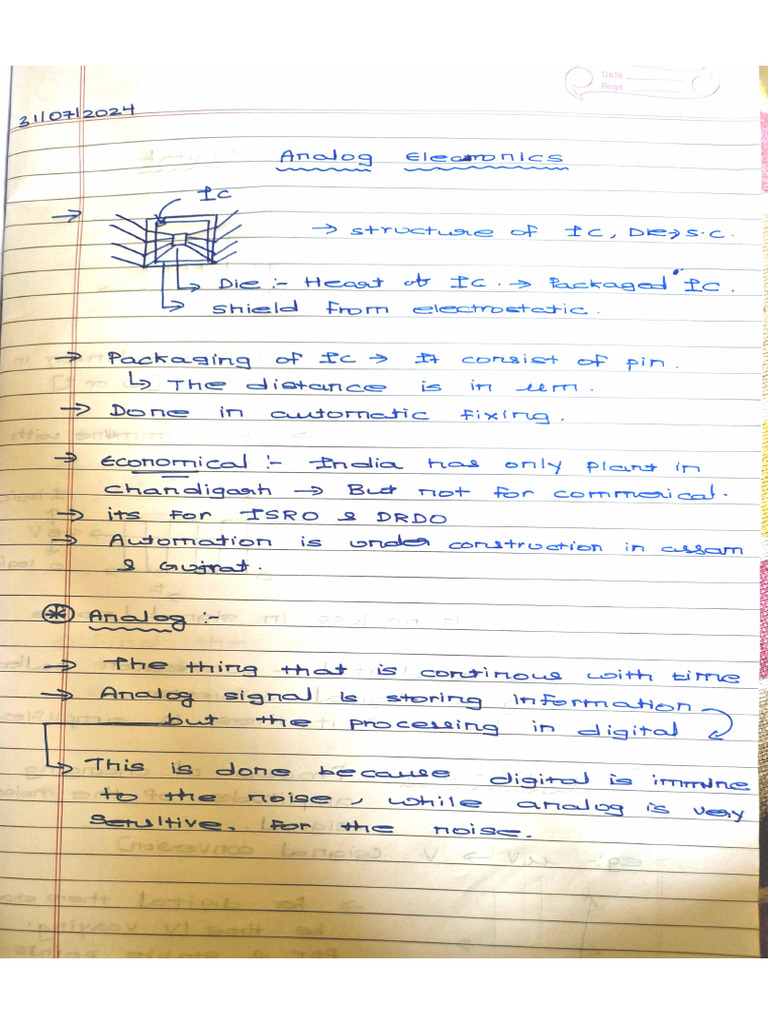 Date
Page
31/07/2024
Analog Electronics
IC
→ → structure of IC, Die → S.C.
↳ Die :- Heart of IC. → Packaged IC.
↳ shield from electrostatic.
→ Packaging of IC → It consist of pin.
↳ The distance is in um.
→ Done in automatic fixing.
→ Economical :- India has only plant in
chandigarh → But not for commerical.
→ its for ISRO & DRDO
→ Automation is under construction in assam
& Gujrat.
* Analog :-
→ The thing that is continous with time
→ Analog signal is storing information
but the processing in digital
↳ This is done because digital is immune
to the noise, while analog is very
sensitive. for the noise.